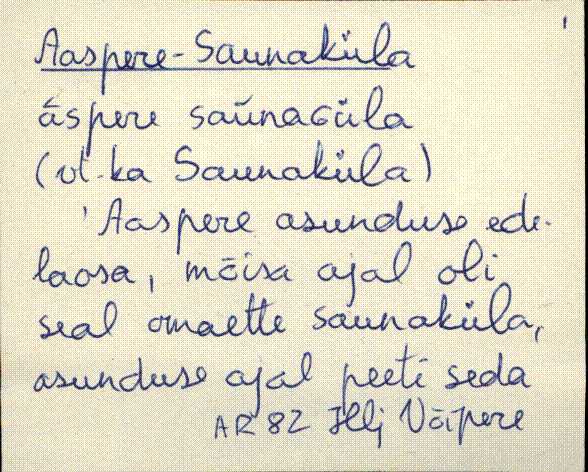 Aaspere-Saunaküla
āspere saùnaGüla
(vt. ka Saunaküla)
'Aaspere asunduse ede-
laosa, mõisa ajal oli
seal omaette saunaküla,
asunduse ajal peeti seda
AR 82 Võipere